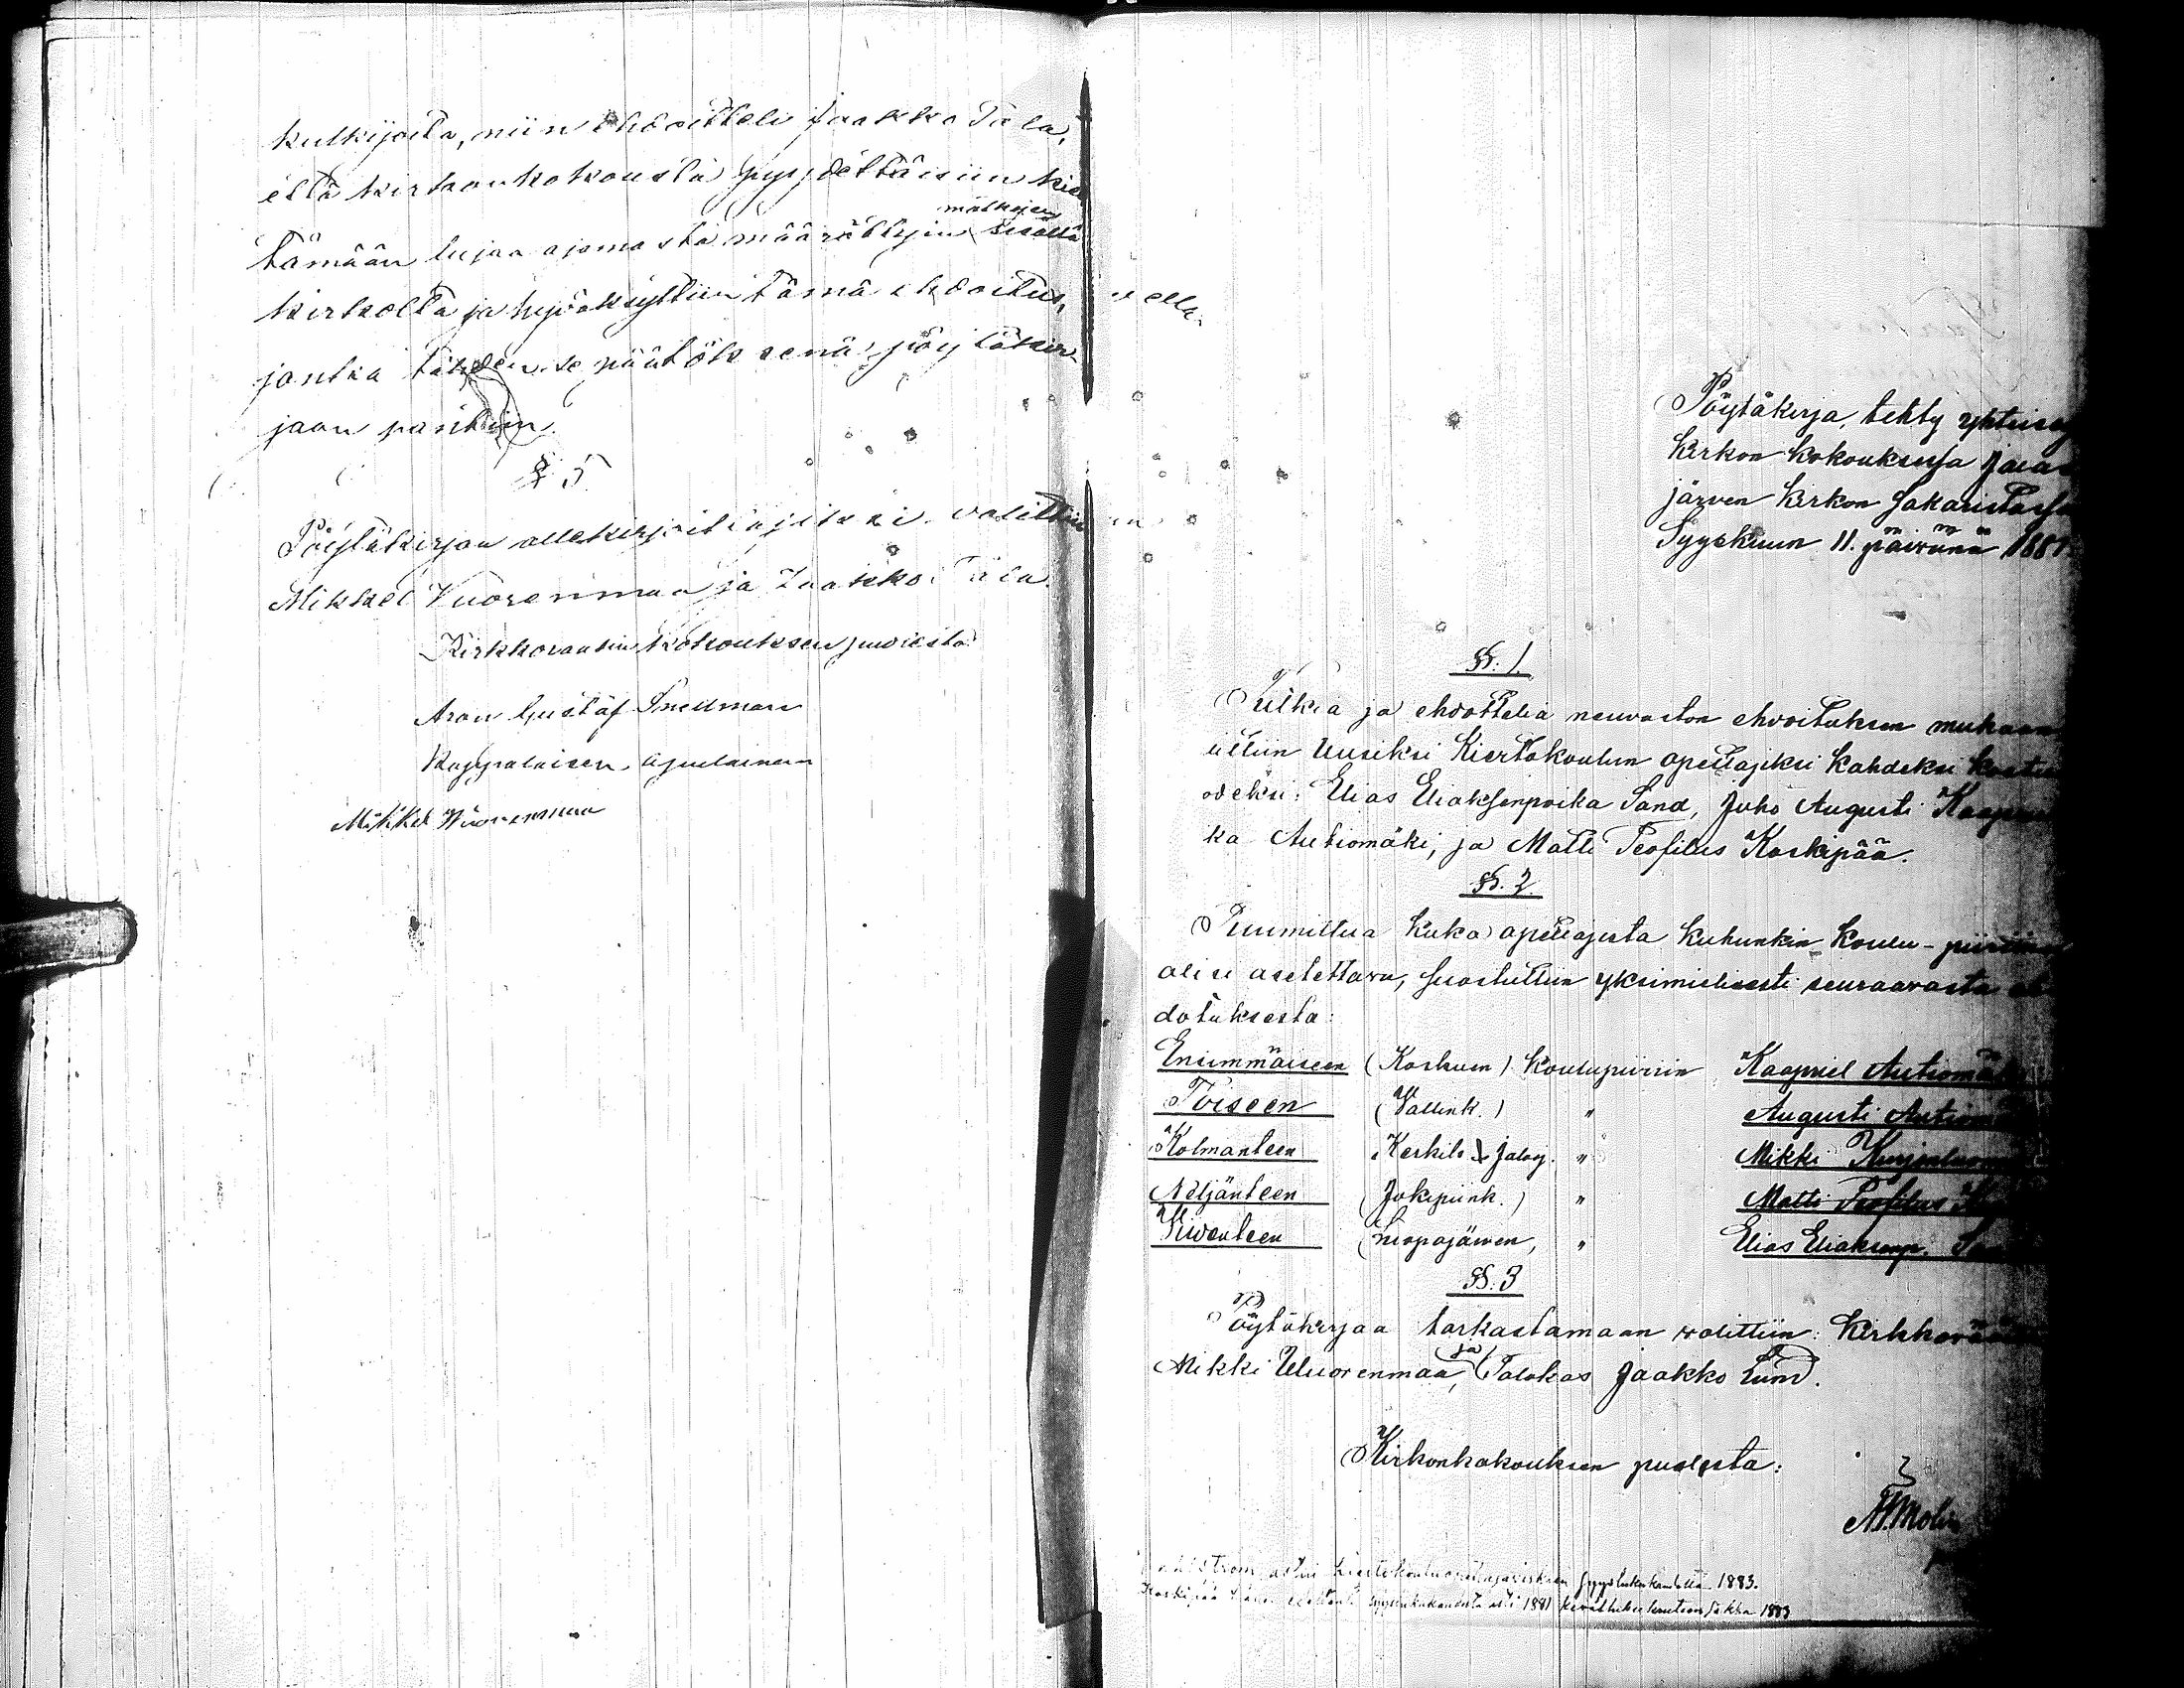 kulkijoita, niin ehdoitteli Jaakko Tala,
että kirkonkokousta pyydettäisiin kiel
mätkyjen
tämään lujaa ajamasta määrättyin sisällä
kirkolta ja hyväksyttiin tämä ehdoitus,
jonka tähden se päätöksenä pöytäkir-
jaan pantiin.
§ 5
Pöytäkirjan allekirjoittajiksi valittiin
Mikkel Vuorenmaa ja Jaakko Tala.
Kirkkoraadin kokouksen puolesta
Aron Gustaf Snellman
Kappalaisen apulainen
Mikkel Wuorenmaa
Pöytäkirja, tehty yhteisessä
Kirkon kokouksessa Jalas
järven Kirkon Sakaristassa
Syyskuun 11. päivänä 1881
§§. 1.
Tutkia ja ehdottelia neuvoston ehdoituksen mukaan
ittiin Uusiksi Kiertokoulun opettajiksi Kahdeksi
odeksi: Elias Eliaksenpoika Sand, Juho Augusti
ka Autiomäki, ja Matti Teofilus Koskipää.
§§. 2.
kuka opettajista kuhunkin koulu-piiriin
olisi asetettava, suostuttiin yksimielisesti seuraavasta eh
dotuksesta:
Ensimmäiseen (Koskuen) Koulupiiriin Kaapriel Autiomäki
Toiseen (Vallink.) " Augusti Autiom
Kolmanteen Keskik. & Jalay. " Mikki
Neljänteen (Jokipiink.) " Matti Teofilus K
Viidenteen (Luopajärven, " Elias Eliaksenp. San
§§. 3
Pöytäkirjaa tarkastamaan valittiin: Kirkkovä
ja
Mikki Wuorenmaa, Talokas Jaakko Lund.
Kirkonkokouksen puolesta:
Molin
astui kiertokoulunopettajavirkaan syyslukukaudella 1883.
Koskipää syyslukukaudesta asti 1881 kevätlukukauteen saakka 1883